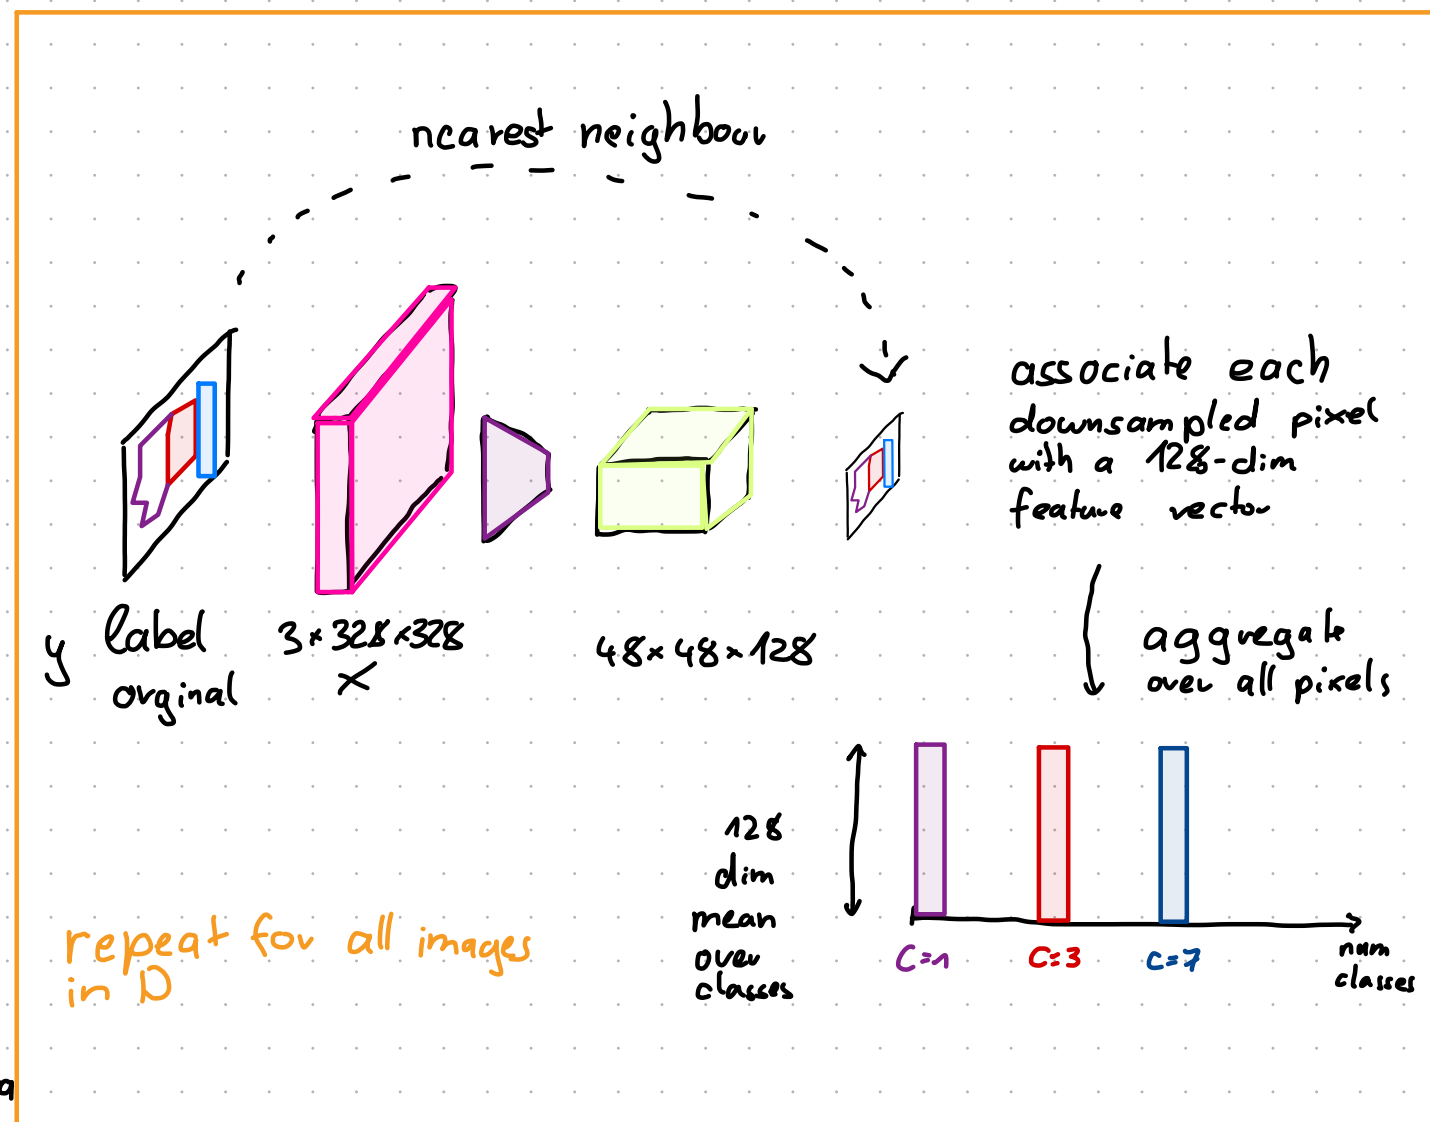 nearest neighbour
associate each
downsampled pixel
with a 128-dim
feature vector
y label
orginal
3×328×328
x
48×48×128
aggregate
over all pixels
128
dim
mean
over
classes
C=1
C=3
C=7
num
classes
repeat for all images
in D